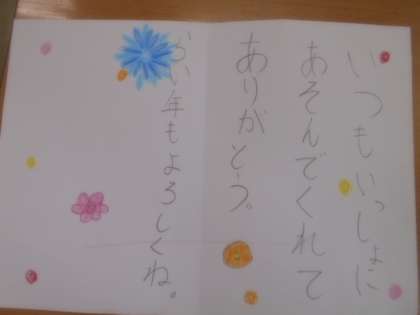 いつもいっしょに
あそんでくれて
ありがとう。
らい年もよろしくね。